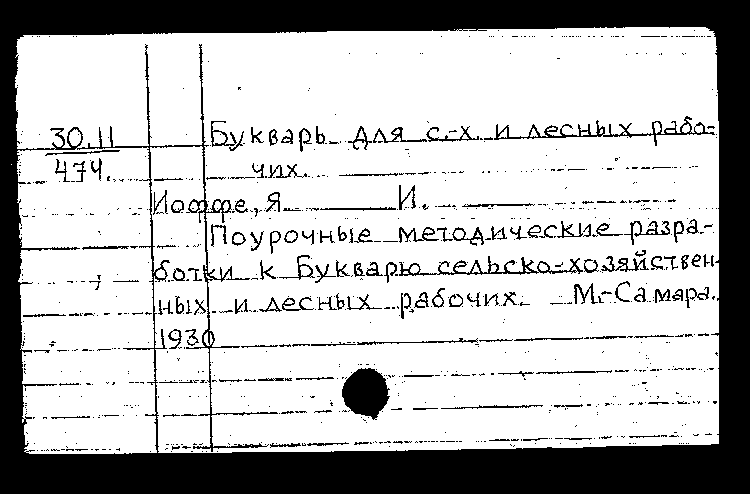 30.11 Букварь для с.-х. и лесных рабо-
474. чих.
Иоффе, Я. И.
Поурочные методические разра-
ботки к Букварю сельско-хозяйствен-
ных и лесных рабочих. М.-Самара.
1930